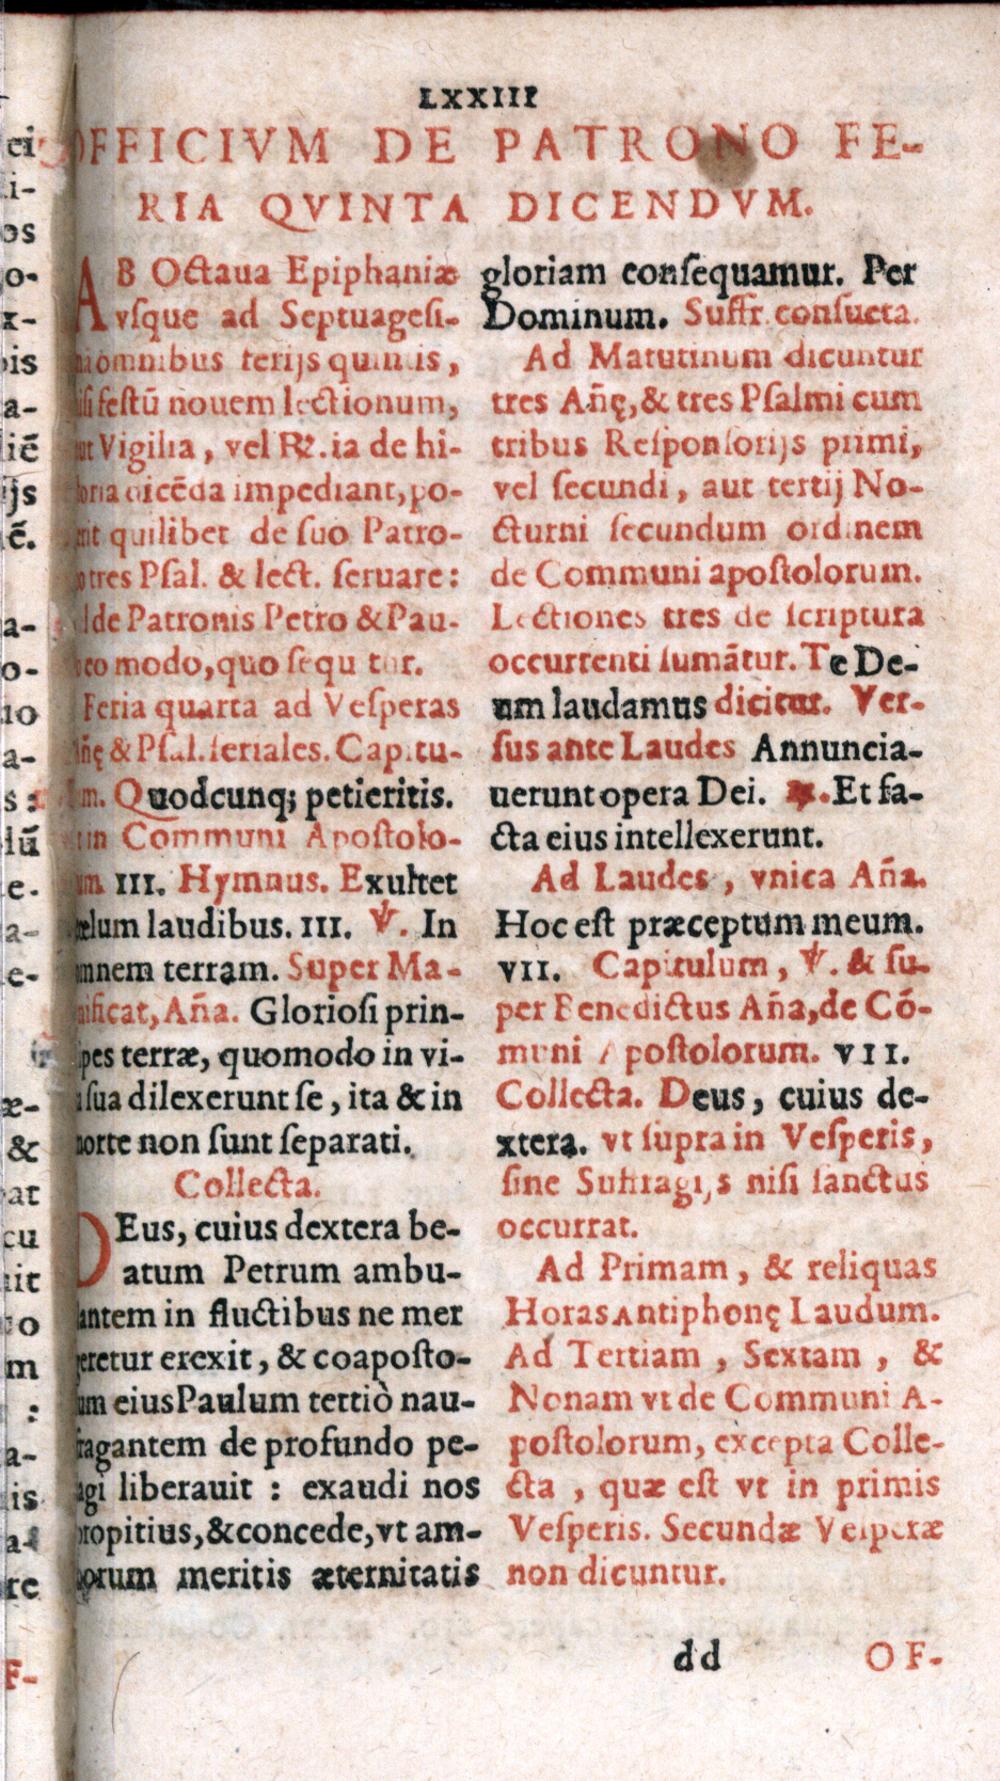 LXXIII
OFFICIVM DE PATRONO FE-
RIA QVINTA DICENDVM.
AB Octaua Epiphaniæ
vſque ad Septuageſi-
omnibus ferijs quintis,
feſtũ nouem lectionum,
Vigilia, vel R̷. ia de hi-
dicẽda impediant, po-
quilibet de ſuo Patro-
tres Pſal. & lect. ſeruare:
de Patronis Petro & Pau-
eo modo, quo ſequ tur.
Feria quarta ad Veſperas
Añę & Pſal. feriales. Capitu-
m. Quodcunq; petieritis.
in Communi Apoſtolo-
um III. Hymnus. Exultet
ælum laudibus. III. ℣. In
mnem terram. Super Ma-
nificat, Aña. Glorioſi prin-
ipes terræ, quomodo in vi-
ſua dilexerunt ſe, ita & in
morte non ſunt ſeparati.
Collecta.
DEus, cuius dextera be-
atum Petrum ambu-
antem in fluctibus ne mer
geretur erexit, & coapoſto-
um eius Paulum tertiò nau-
ragantem de profundo pe-
agi liberauit : exaudi nos
propitius, & concede, vt am-
borum meritis æternitatis
gloriam conſequamur. Per
Dominum. Suffr. conſueta.
Ad Matutinum dicuntur
tres Añę, & tres Pſalmi cum
tribus Reſponſorijs primi,
vel ſecundi, aut tertij No-
cturni ſecundum ordinem
de Communi apoſtolorum.
Lectiones tres de ſcriptura
occurrenti ſumãtur. Te De-
um laudamus dicitur. Ver-
ſus ante Laudes Annuncia-
uerunt opera Dei. ℟. Et fa-
cta eius intellexerunt.
Ad Laudes, vnica Aña.
Hoc eſt præceptum meum.
VII. Capitulum, ℣. & ſu-
per Benedictus Aña, de Cõ-
muni Apoſtolorum. VII.
Collecta. Deus, cuius de-
xtera. vt ſupra in Veſperis,
ſine Suffragijs niſi ſanctus
occurrat.
Ad Primam, & reliquas
Horas Antiphonę Laudum.
Ad Tertiam, Sextam, &
Nonam vt de Communi A-
poſtolorum, excepta Colle-
cta, quæ eſt vt in primis
Veſperis. Secundæ Veſperæ
non dicuntur.
dd OF-